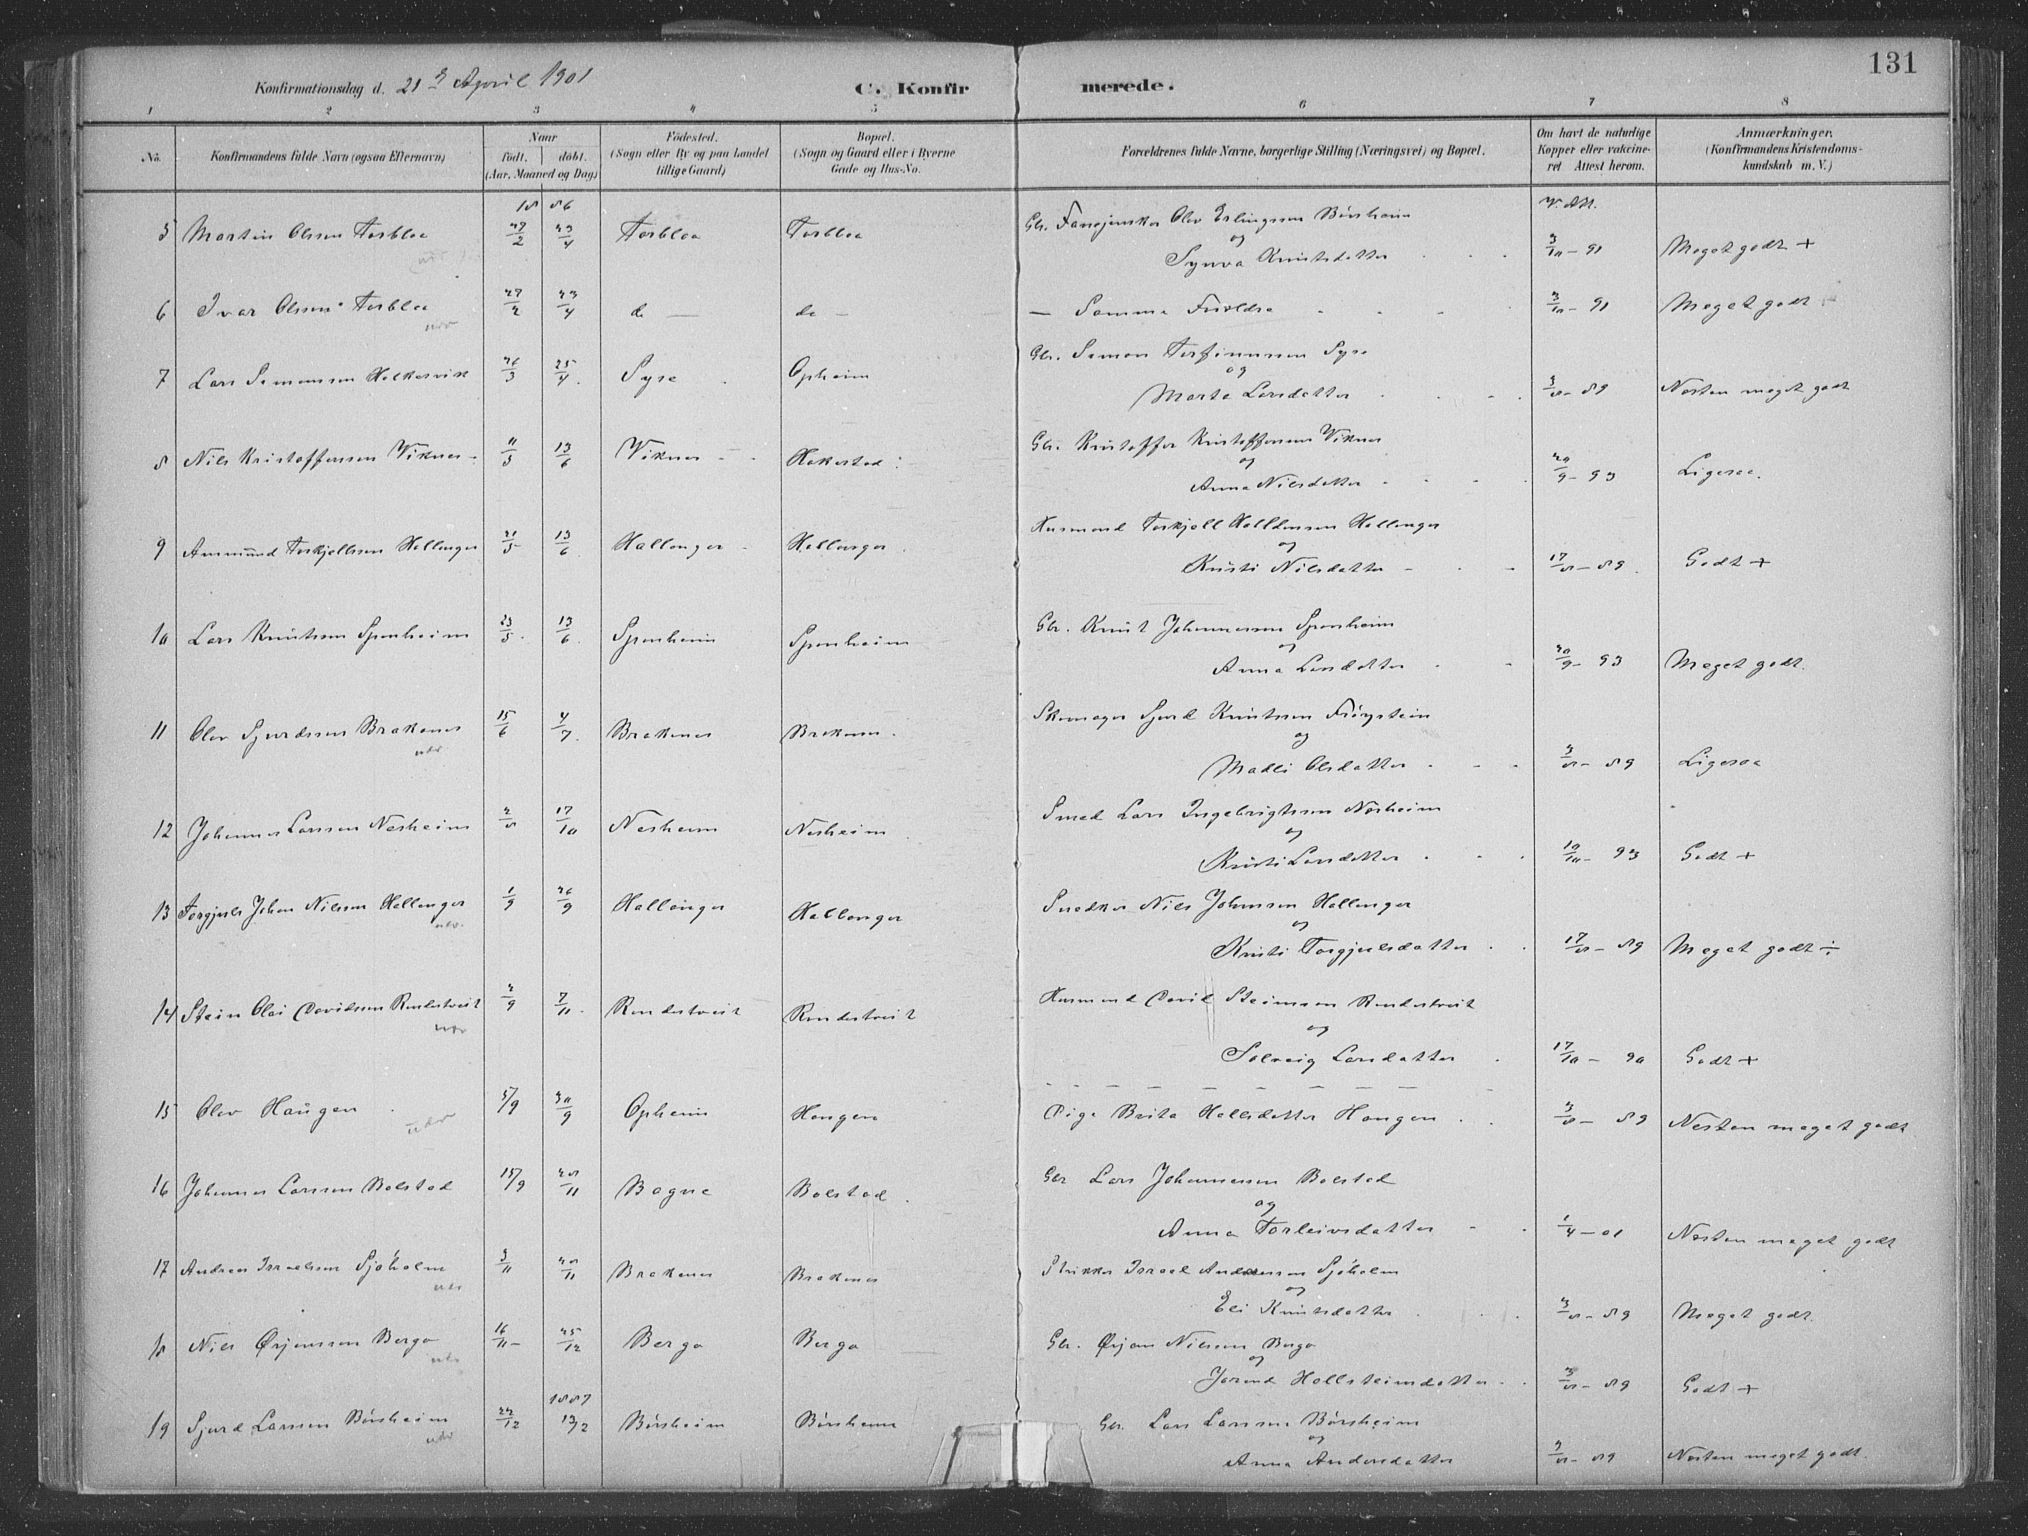 131
Konfirmationsdag d. 21de April 1901 C. Konfirmerede.
1 2 3 4 5 6 7 8
No. Konfirmandens fulde Navn (ogsaa Efternavn) Naar født. døbt. (Aar, Maaned og Dag) Fødested. (Sogn eller By og paa Landet tillige Gaard) Bopæl. (Sogn og Gaard eller i Byerne Gade og Hus-No. Forældrenes fulde Navne, borgerlige Stilling (Næringsvei) og Bopæl. Om havt de naturlige Kopper eller vakcineret Attest herom. Anmærkninger. (Konfirmandens Kristendomskundskab m. V.)
1886
5 Martin Olsen Torbloa 27/2 23/4 Torbloa Torbloa Gbr. Olav Erlingsen Børsheim
og
Synva Knutsdatter 3/10 - 91 Meget godt +
6 Ivar Olsen Torbloa udv 27/2 23/4 do — do — — Samme Forældre 3/10 - 91 Meget godt
7 Lars Simonsen 26/3 25/4 Syse Opheim Gbr. Simon Torfinnssen Syse
og
Marta Larsdatter 3/8 - 89 Næsten meget godt
8 Nils Kristoffersen Viknes 11/5 13/6 Viknes Hakestad Gbr. Kristoffer Kristoffersen Viknes
og
Anna Nilsdatter 20/9 - 93 Ligesaa.
9 Ammund Torkjellsen Hallanger 21/5 13/6 Hallanger Hallanger Husmand Torkjell Halldorsen Hallanger
og
Kristi Nilsdatter 17/8 - 89 Godt +
10 Lars Knutsen Sponheim 23/5 13/6 Sponheim Sponheim Gbr. Knut Johannessen Sponheim
og
Anna Larsdatter 20/9 - 93 Meget godt.
11 Olav Sjurdssen Brakenes udv 15/6 4/7 Brakenes Brakenes Skomager Sjurd Knutssen Frøystein
og
Madli Olsdatter 3/8 - 89 Ligesaa
12 Johannes Larssen Nesheim 2/8 17/10 Nesheim Nesheim Smed Lars Ingebrigtssen Nesheim
og
Kristi Larsdatter 10/10 - 93 Godt +
13 Torgjuls Johan Nilssen Hallanger udv. 1/9 26/9 Hallanger Hallanger Snedker Nils Johansen Hallanger
og
Kristi Torgjulsdatter 17/8 - 89 Meget godt ÷
14 Stein Olai Davidsen Rondestveit udv 2/9 7/11 Rondestveit Rondestveit Husmand David Steinsen Rondestveit
og
Solveig Larsdatter 17/10 - 90 Godt +
15 Olav Haugen udv 5/9 30/9 Opheim Haugen Pige Brita Hallsdatter Haugen 3/8 - 89 Næsten meget godt
16 Johannes Larssen Bolstad 15/9 28/11 Bagne Bolstad Gbr Lars Johannessen Bolstad
og
Anna Torleivsdatter 1/4 - 01 Næsten meget godt
17 Andreas Israelsen Sjøholm udv 3/11 28/11 Brakenes Brakenes Strikker Israel Andersen Sjøholm
og
Eli Knutsdatter 3/8 - 89 Meget godt.
18 Nils Ørjansen Bergo udv 16/11 25/12 Bergo Bergo Gbr. Ørjan Nilssen Bergo
og
Jorand Hallsteinsdatter 3/8 - 89 Godt +
1887
19 Sjurd Larssen Børsheim udv 22/12 13/2 Børsheim Børsheim Gbr. Lars Larssen Børsheim
og
Anna Andersdatter 3/8 - 89 Næsten meget godt.